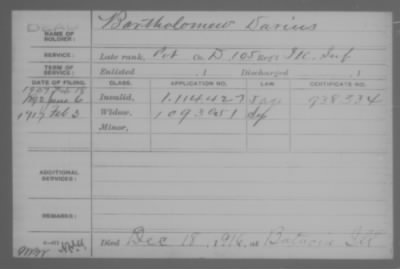 DEAD
NAME OF SOLDIER: Bartholomew Darius
SERVICE: Late rank, Pvt Co. D, 105 Reg't Ill. Inf
TERM OF SERVICE: Enlisted , 1 Discharged , 1
DATE OF FILING. CLASS. APPLICATION NO. CERTIFICATE NO.
1892 June 6 Invalid, 1.114.427 938.334
1917 Feb 3 Widow, 1093051
Minor,
ADDITIONAL SERVICES:
REMARKS:
Died Dec 18, 1916, at Batavia Ill